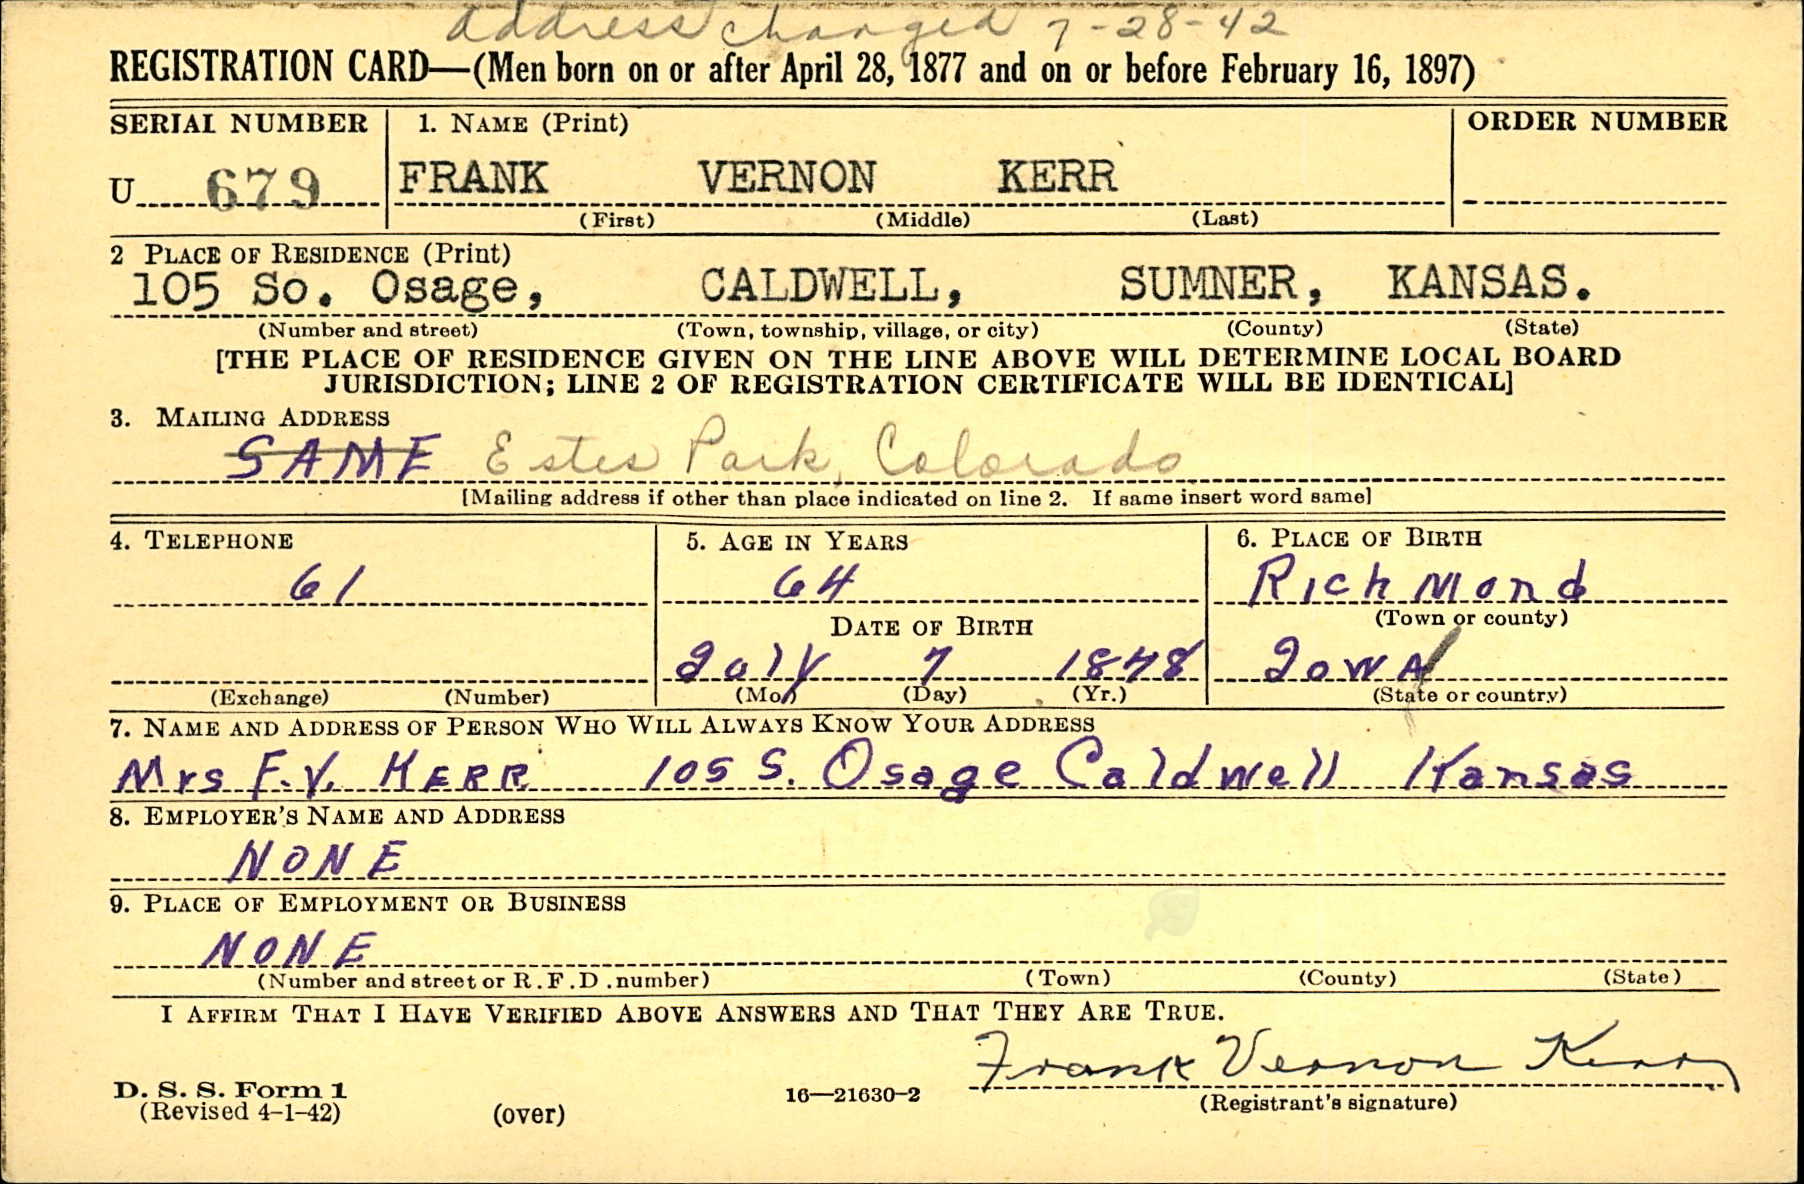 address changed 7-28-42
REGISTRATION CARD—(Men born on or after April 28, 1877 and on or before February 16, 1897)
SERIAL NUMBER 1. NAME (Print) ORDER NUMBER
U 679 FRANK VERNON KERR
(First) (Middle) (Last)
2 PLACE OF RESIDENCE (Print)
105 So. Osage, CALDWELL, SUMNER, KANSAS.
(Number and street) (Town, township, village, or city) (County) (State)
[THE PLACE OF RESIDENCE GIVEN ON THE LINE ABOVE WILL DETERMINE LOCAL BOARD
JURISDICTION; LINE 2 OF REGISTRATION CERTIFICATE WILL BE IDENTICAL]
3. MAILING ADDRESS
SAME Estes Park, Colorado
[Mailing address if other than place indicated on line 2. If same insert word same]
4. TELEPHONE 5. AGE IN YEARS 6. PLACE OF BIRTH
61 64 RichMond
(Town or county)
DATE OF BIRTH
July 7 1878 IowA
(Exchange) (Number) (Mo.) (Day) (Yr.) (State or country)
7. NAME AND ADDRESS OF PERSON WHO WILL ALWAYS KNOW YOUR ADDRESS
Mrs F.V. KERR 105 S. Osage Caldwell Kansas
8. EMPLOYER'S NAME AND ADDRESS
NONE
9. PLACE OF EMPLOYMENT OR BUSINESS
NONE
(Number and street or R.F.D. number) (Town) (County) (State)
I AFFIRM THAT I HAVE VERIFIED ABOVE ANSWERS AND THAT THEY ARE TRUE.
Frank Vernon Kerr
D. S. S. Form 1
(Revised 4-1-42) (over) 16—21630-2 (Registrant's signature)